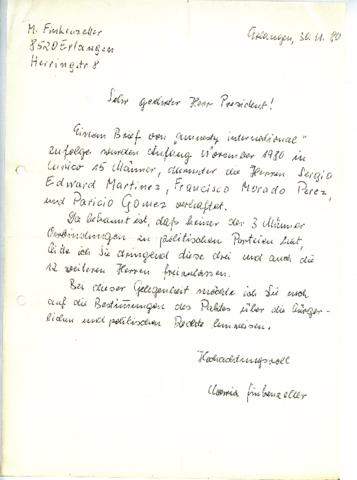 M. Finkenzeller
8520 Erlangen
Heeringstr 8
Erlangen, 30.11.80
Sehr geehrter Herr President!
Einem Brief von "amnesty international"
zufolge wurden Anfang November 1980 in
Curico 15 Männer, darunter die Herren Sergio
Edward Martinez, Francisco Morado Perez,
und Paricio Gomez verhaftet.
Da bekannt ist, daß keiner der 3 Männer
Verbindungen zu politischen Parteien hat,
bitte ich Sie dringend diese drei und auch die
12 weiteren Herren freizulassen.
Bei dieser Gelegenheit möchte ich Sie noch
auf die Bestimmungen des Paktes über die bürger-
lichen und politischen Rechte hinweisen.
Hochachtungsvoll
Finkenzeller